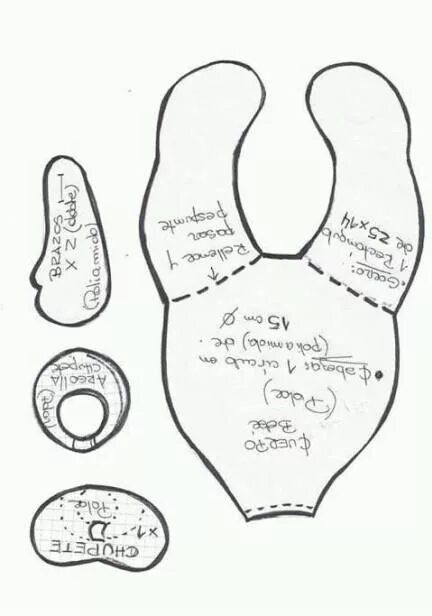 BRAZOS
X 2 (doble)
(Poliamida)
ARGOLLA
Chupete
(Polar)
CHUPETE x1
Polar
CUERPO
Bebé
(Polar)
Cabeza: 1 circulo en
(poliamida) de
15 cm Ø
Rellene y
pasar
pespunte
Gorro:
1 Rectangulo
de 25x14